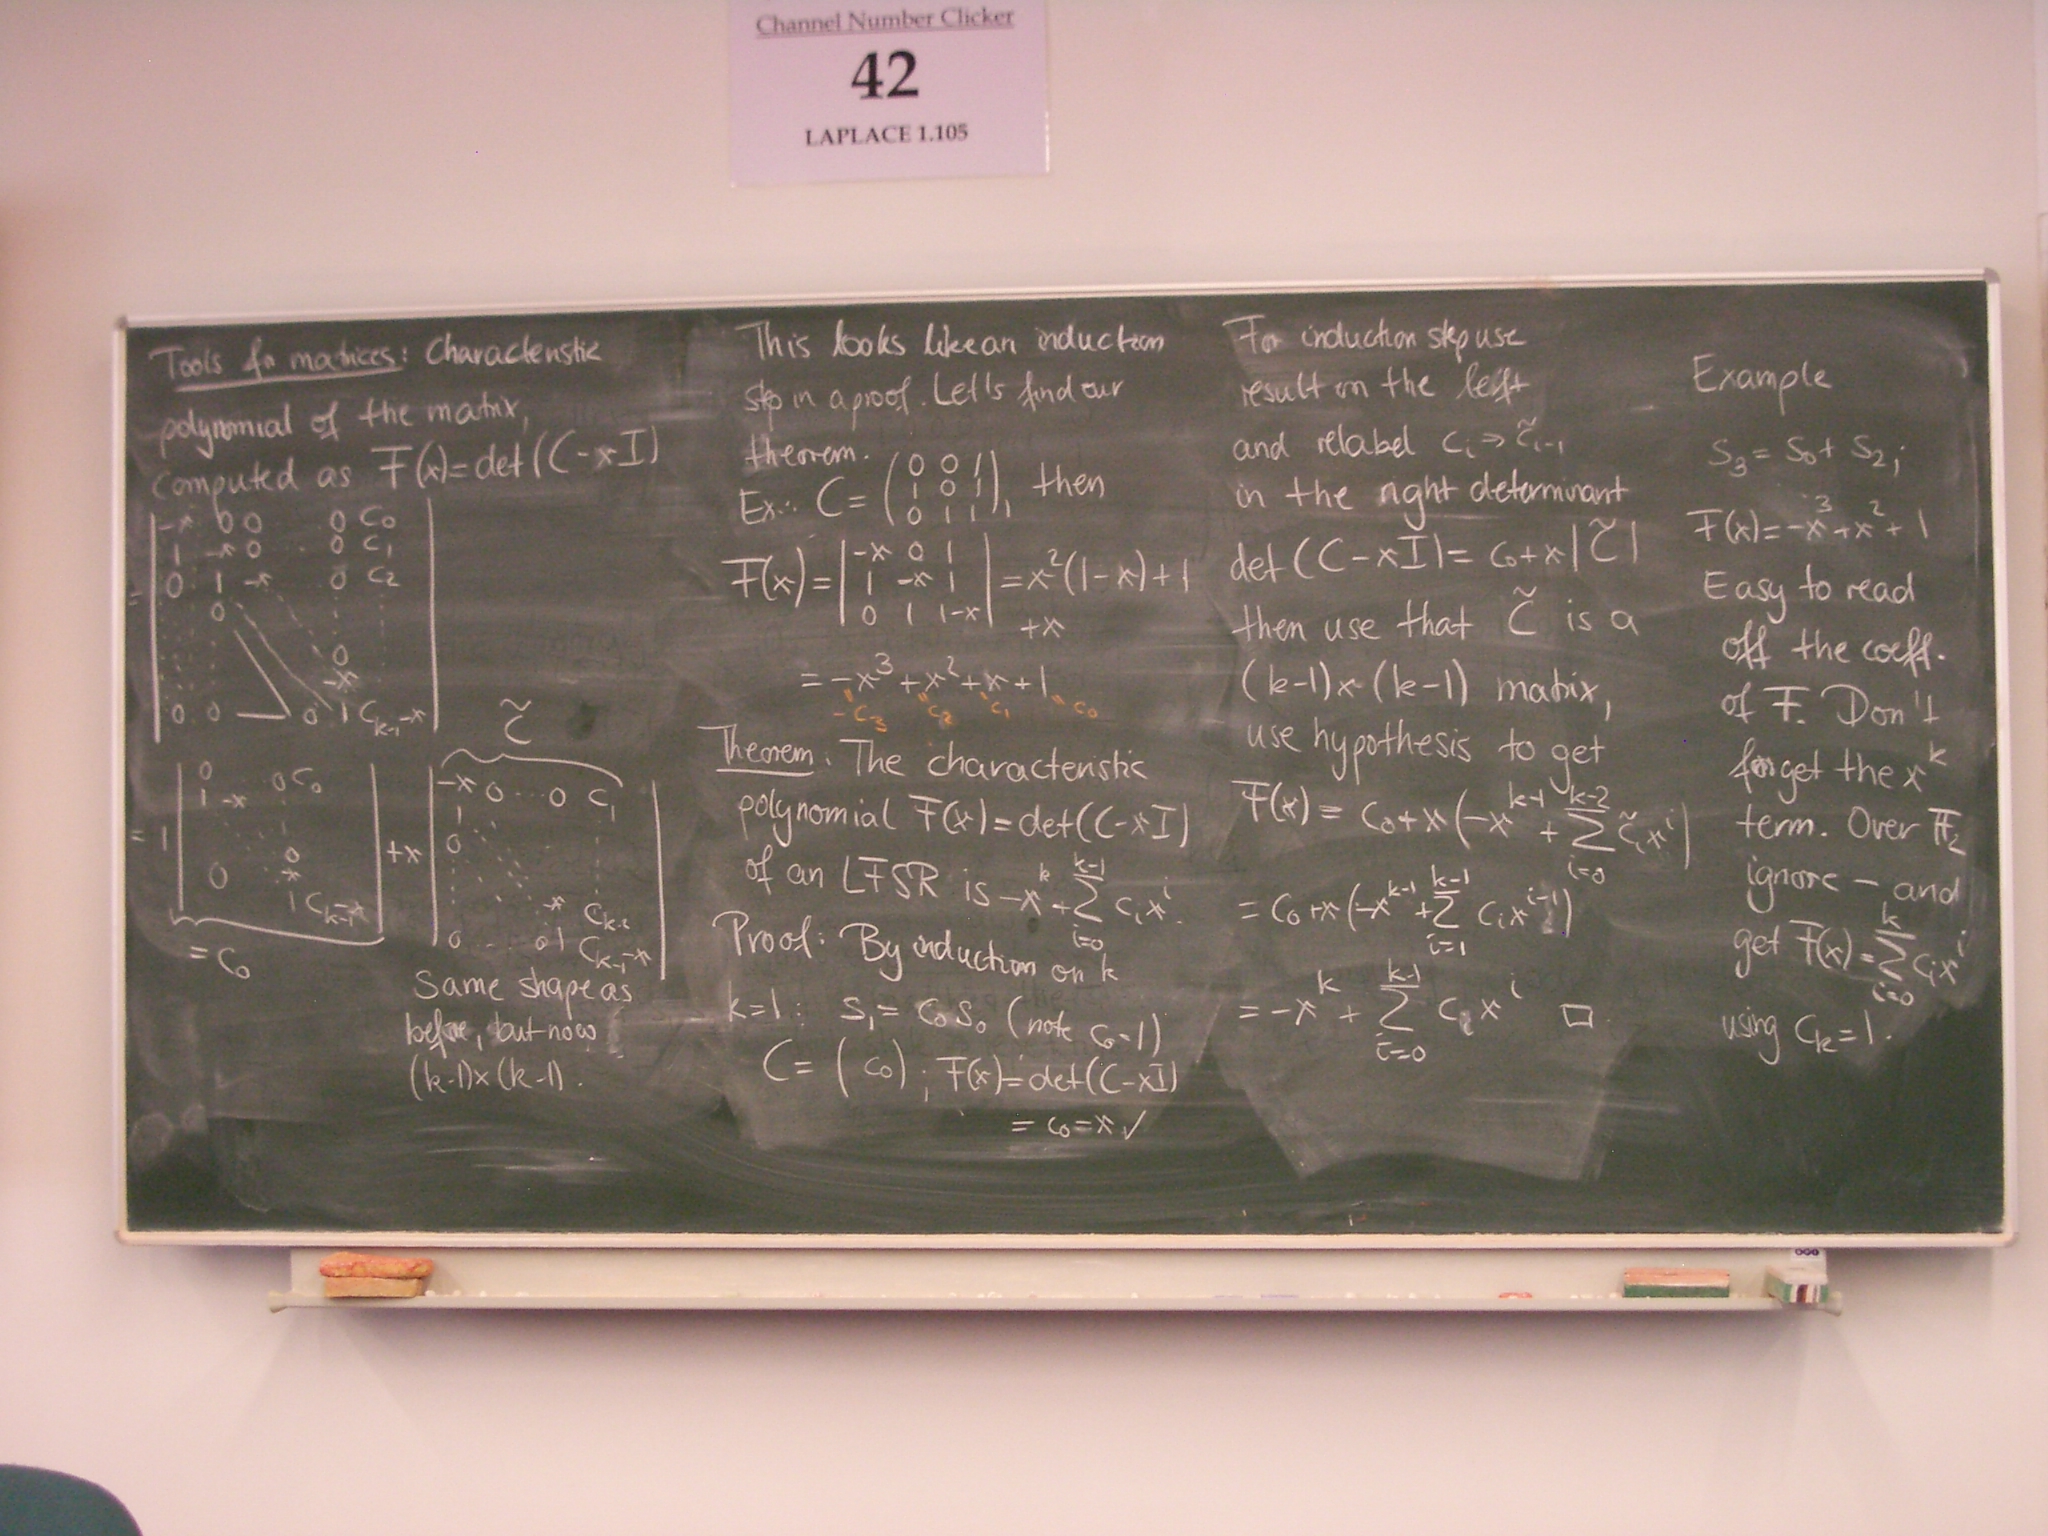 Channel Number Clicker
42
LAPLACE 1.105
Tools for matrices: Characteristic
polynomial of the matrix,
computed as F(x)=det(C-xI)
= | -x 0 0 0 c₀ |
1 -x 0 . . 0 c₁
0 1 -x 0 c₂
0
0
-x
0 0 0 1 c_{k-1}-x
C̃
= 1 | 0 0 c₀ | + x | -x 0 ... 0 c₁ |
1 -x 1
0 0
0 -x -x c_{k-2}
1 c_{k-1}-x 0 ... 0 1 c_{k-1}-x
= c₀
Same shape as
before, but now
(k-1)x(k-1).
This looks like an induction
step in a proof. Let's find our
theorem.
Ex.: C = ( 0 0 1 / 1 0 1 / 0 1 1 ), then
F(x) = | -x 0 1 / 1 -x 1 / 0 1 1-x | = x²(1-x)+1
+x
= -x³+x²+x+1
-c₃ c₂ c₁ c₀
Theorem: The characteristic
polynomial F(x)=det(C-xI)
of an LFSR is -x^k+∑_{i=0}^{k-1} c_i x^i.
Proof: By induction on k
k=1: s₁=c₀s₀ (note c₀=1)
C=(c₀); F(x)=det(C-xI)
= c₀-x ✓
For induction step use
result on the left
and relabel c_i → c̃_{i-1}
in the right determinant
det(C-xI)=c₀+x|C̃|
then use that C̃ is a
(k-1)x(k-1) matrix,
use hypothesis to get
F(x) = c₀+x(-x^{k-1}+∑_{i=0}^{k-2} c̃_i x^i)
= c₀+x(-x^{k-1}+∑_{i=1}^{k-1} c_i x^{i-1})
= -x^k+∑_{i=0}^{k-1} c_i x^i □
Example
s₃=s₀+s₂;
F(x)=-x³+x²+1
Easy to read
off the coeff.
of F. Don't
forget the x^k
term. Over 𝔽₂
ignore - and
get F(x)=∑_{i=0}^{k} c_i x^i
using c_k=1.